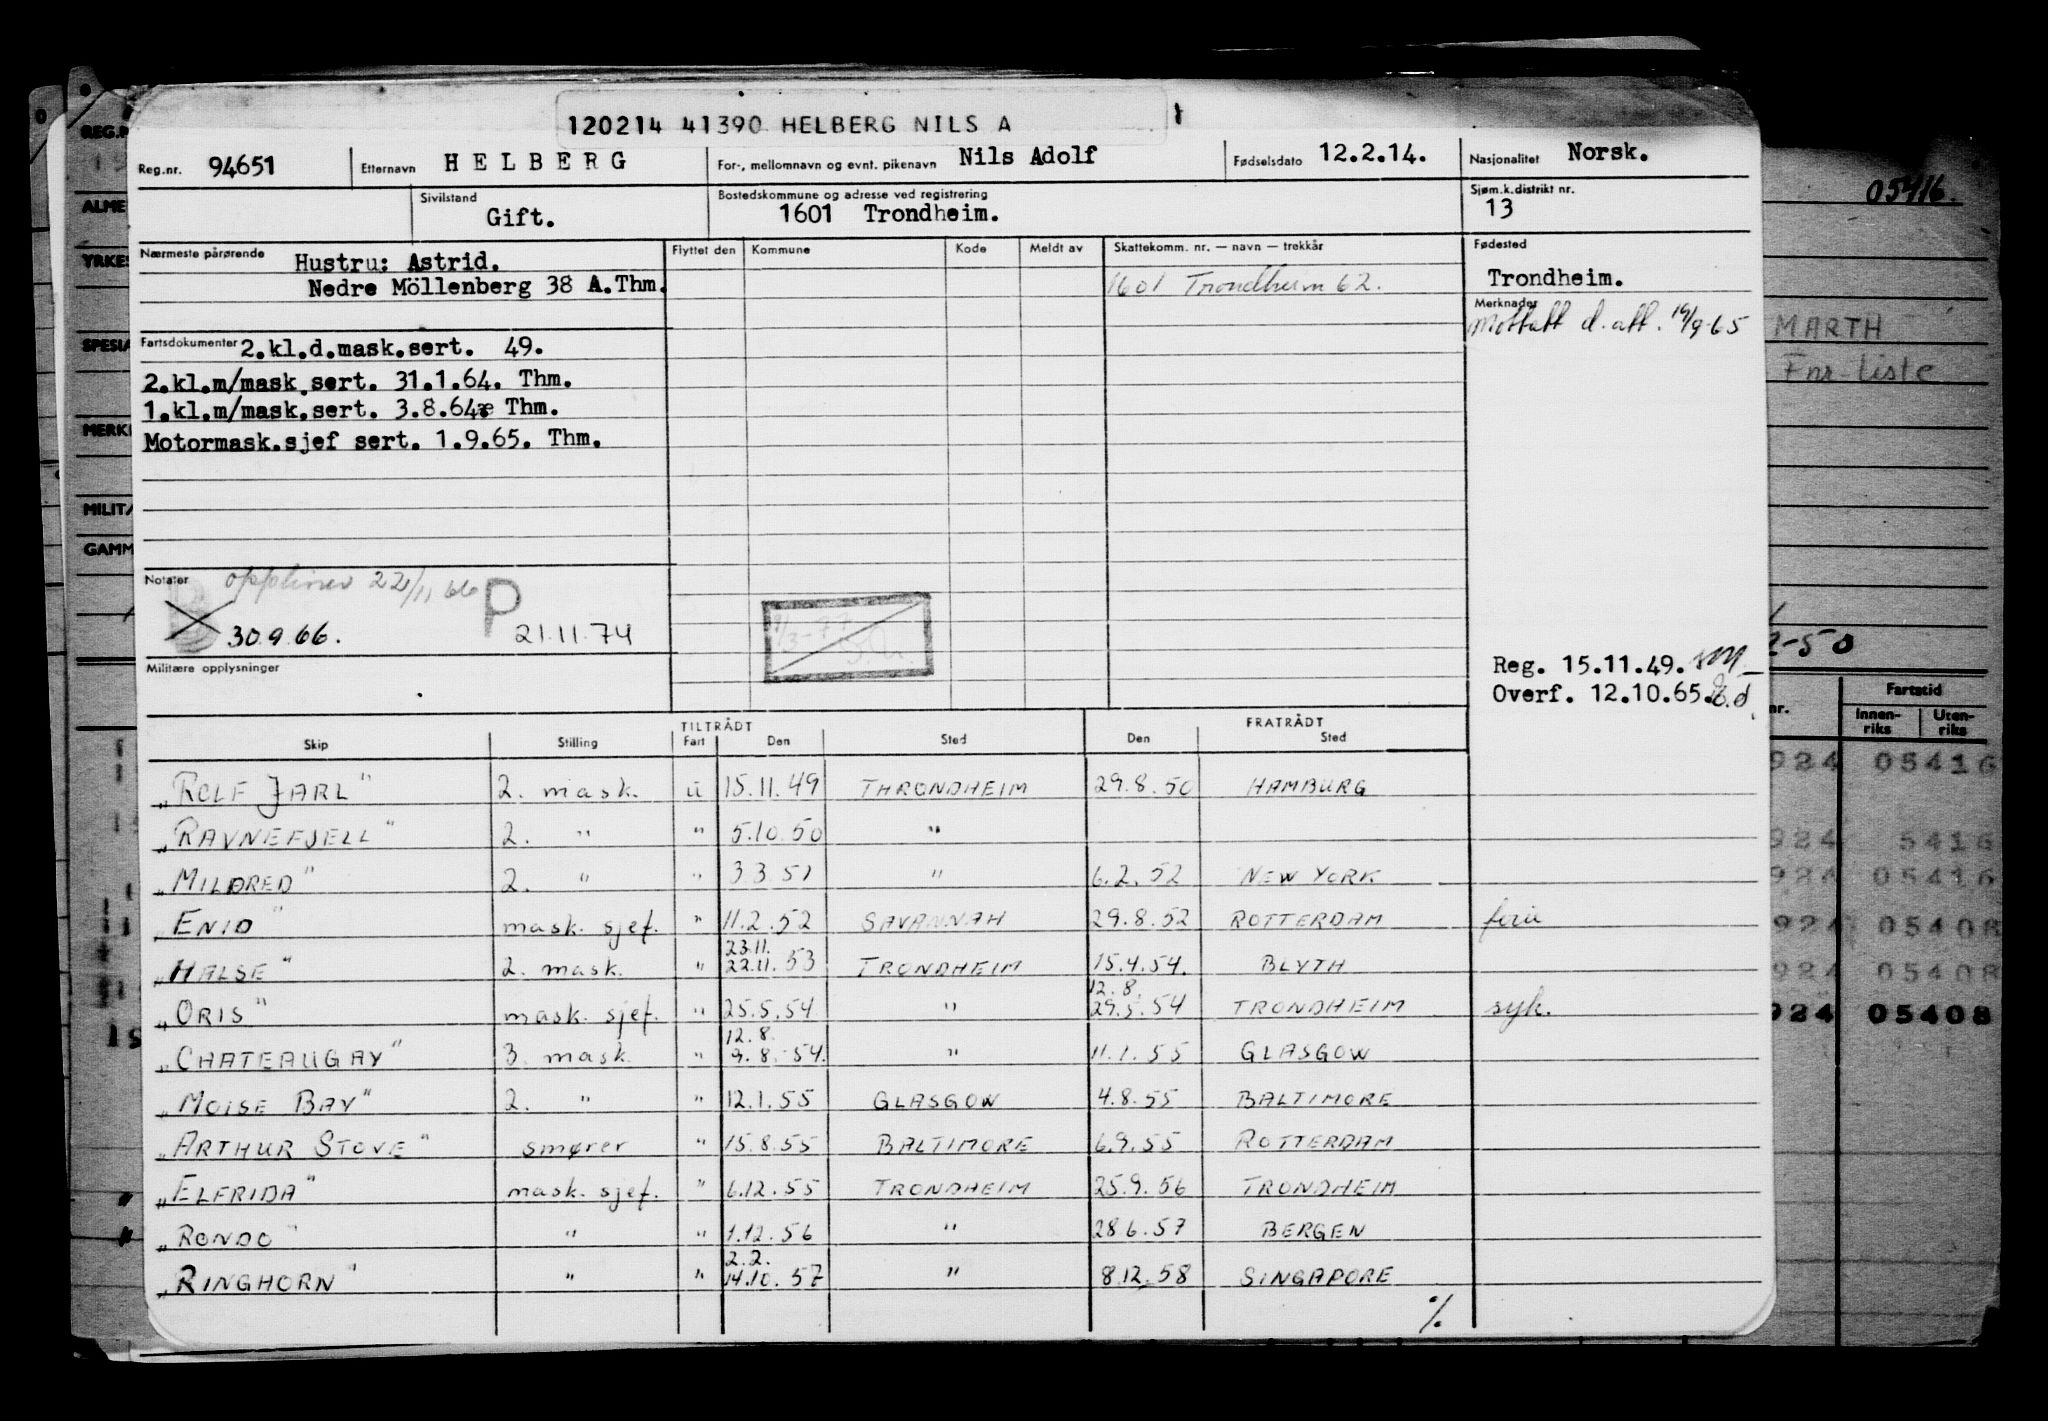 120214 41390 HELBERG NILS A
Reg.nr. 94651 Etternavn HELBERG For-, mellomnavn og evnt. pikenavn Nils Adolf Fødselsdato 12.2.14. Nasjonalitet Norsk.
Sivilstand Gift. Bostedskommune og adresse ved registrering 1601 Trondheim. Sjøm.k.distrikt nr. 13
Nærmeste pårørende Hustru: Astrid. Flyttet den Kommune Kode Meldt av Skattekomm. nr. — navn — trekkår Fødested
Nedre Möllenberg 38 A.Thm. 1601 Trondheim 62. Trondheim.
Merknader
Mottatt d. att. 19/9-65
Fartsdokumenter 2.kl.d.mask.sert. 49.
2.kl.m/mask sert. 31.1.64. Thm.
1.kl.m/mask.sert. 3.8.64 Thm.
Motormask.sjef sert. 1.9.65. Thm.
Notater 22/11 66 P
30.9.66. 21.11.74
Militære opplysninger
Reg. 15.11.49.
Overf. 12.10.65.
TILTRÅDT FRATRÅDT
Skip Stilling Fart Den Sted Den Sted
„ROLF JARL" 2. mask. u 15.11.49 THRONDHEIM 29.8.50 HAMBURG
„RAVNEFJELL" 2. " " 5.10.50 "
„MILDRED" 2. " " 3.3.51 " 6.2.52 NEW YORK
„ENID" mask. sjef. " 11.2.52 SAVANNAH 29.8.52 ROTTERDAM ferie
23.11.
„HALSE" 2. mask. " 22.11.53 TRONDHEIM 15.4.54. BLYTH
12.8.
„ORIS" mask. sjef. " 25.5.54 " 29.5.54 TRONDHEIM syk.
12.8.
„CHATEAUGAY" 3. mask. " 9.8.54. " 11.1.55 GLASGOW
„MOISE BAY" 2. " " 12.1.55 GLASGOW 4.8.55 BALTIMORE
„ARTHUR STOVE" smører " 15.8.55 BALTIMORE 6.9.55 ROTTERDAM
„ELFRIDA" mask. sjef. " 6.12.55 TRONDHEIM 25.9.56 TRONDHEIM
„RONDO" " " 1.12.56 " 28.6.57 BERGEN
2.2.
„RINGHORN" " " 14.10.57 " 8.12.58 SINGAPORE
%
REG.N
ALME
YRKES
SPESIA
MERK
MILIT
GAMM
05416.
MARTH
Fnr-liste
2-50
nr. Fartstid
Innen-riks Uten-riks
924 05416
924 5416
924 05416
924 05408
924 05408
924 05408